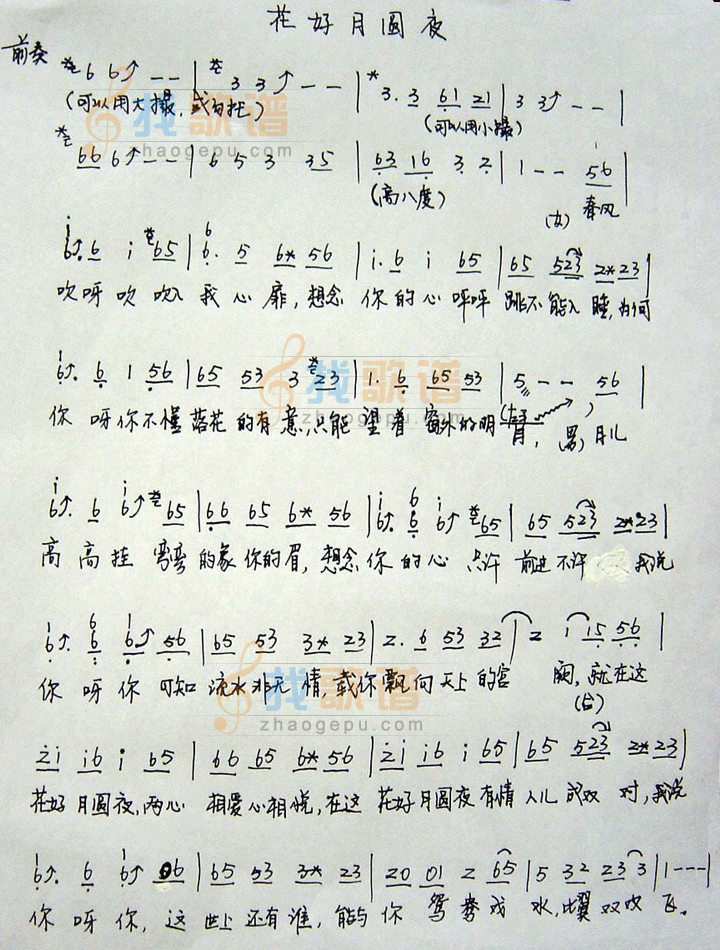 花好月圆夜
前奏
6 6 - - | 3 3 - - | 3. 3 61 21 | 3 3 - - |
(可以用大撮,或勾托)
(可以用小撮)
找歌谱
zhaogepu.com
66 6 - - | 6 5 3 35 | 63 16 3 2 | 1 - - 56 |
(高八度)
(女) 春风
6. 6 i 65 | 6. 5 6* 56 | i. 6 i 65 | 65 523 2*23 |
吹呀吹 吹入 我心扉,想念 你的心 呯呯 跳不能入 睡,为何
6. 6 1 56 | 65 53 3 23 | 1. 6 65 53 | 5 - - 56 |
找歌谱
zhaogepu.com
你 呀你 不懂 落花 的有 意,只能 望着 窗外的明 月, (男) 月儿
6. 6 6 65 | 66 65 6* 56 | 6. 6 6 65 | 65 523 2*23 |
高 高挂 弯弯 的象 你的眉,想念 你的心 只许 前进 不许 我说
6. 6 6 56 | 65 53 3* 23 | 2. 6 53 32 | 2 i 15 56 |
你 呀你 可知 流水 非无 情,载你 飘向 天上 的宫 阙,就在这
找歌谱
zhaogepu.com
(合)
2i i6 i 65 | 66 65 6* 56 | 2i i6 i 65 | 65 523 2*23 |
花好 月圆夜,两心 相爱心相悦,在这 花好月圆夜 有情 人儿 成双 对,我说
6. 6 6 06 | 65 53 3* 23 | 20 01 2 65 | 5 32 23 3 | 1 - - - |
你 呀你,这 世上 还有 谁,能与 你 鸳鸯 戏 水,比翼 双双 飞。